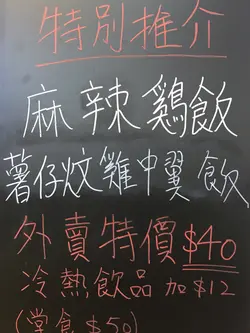 特別推介
麻辣鷄飯
薯仔炆雞中翼飯
外賣特價$40
冷熱飲品加$12
(堂食$50)